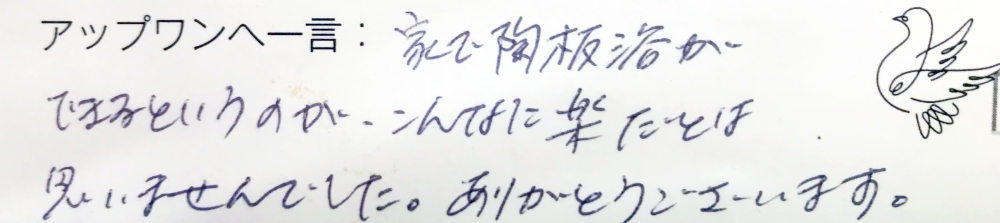 アップワンへ一言：家で陶板浴が
できるというのが、こんなに楽だとは
思いませんでした。ありがとうございます。